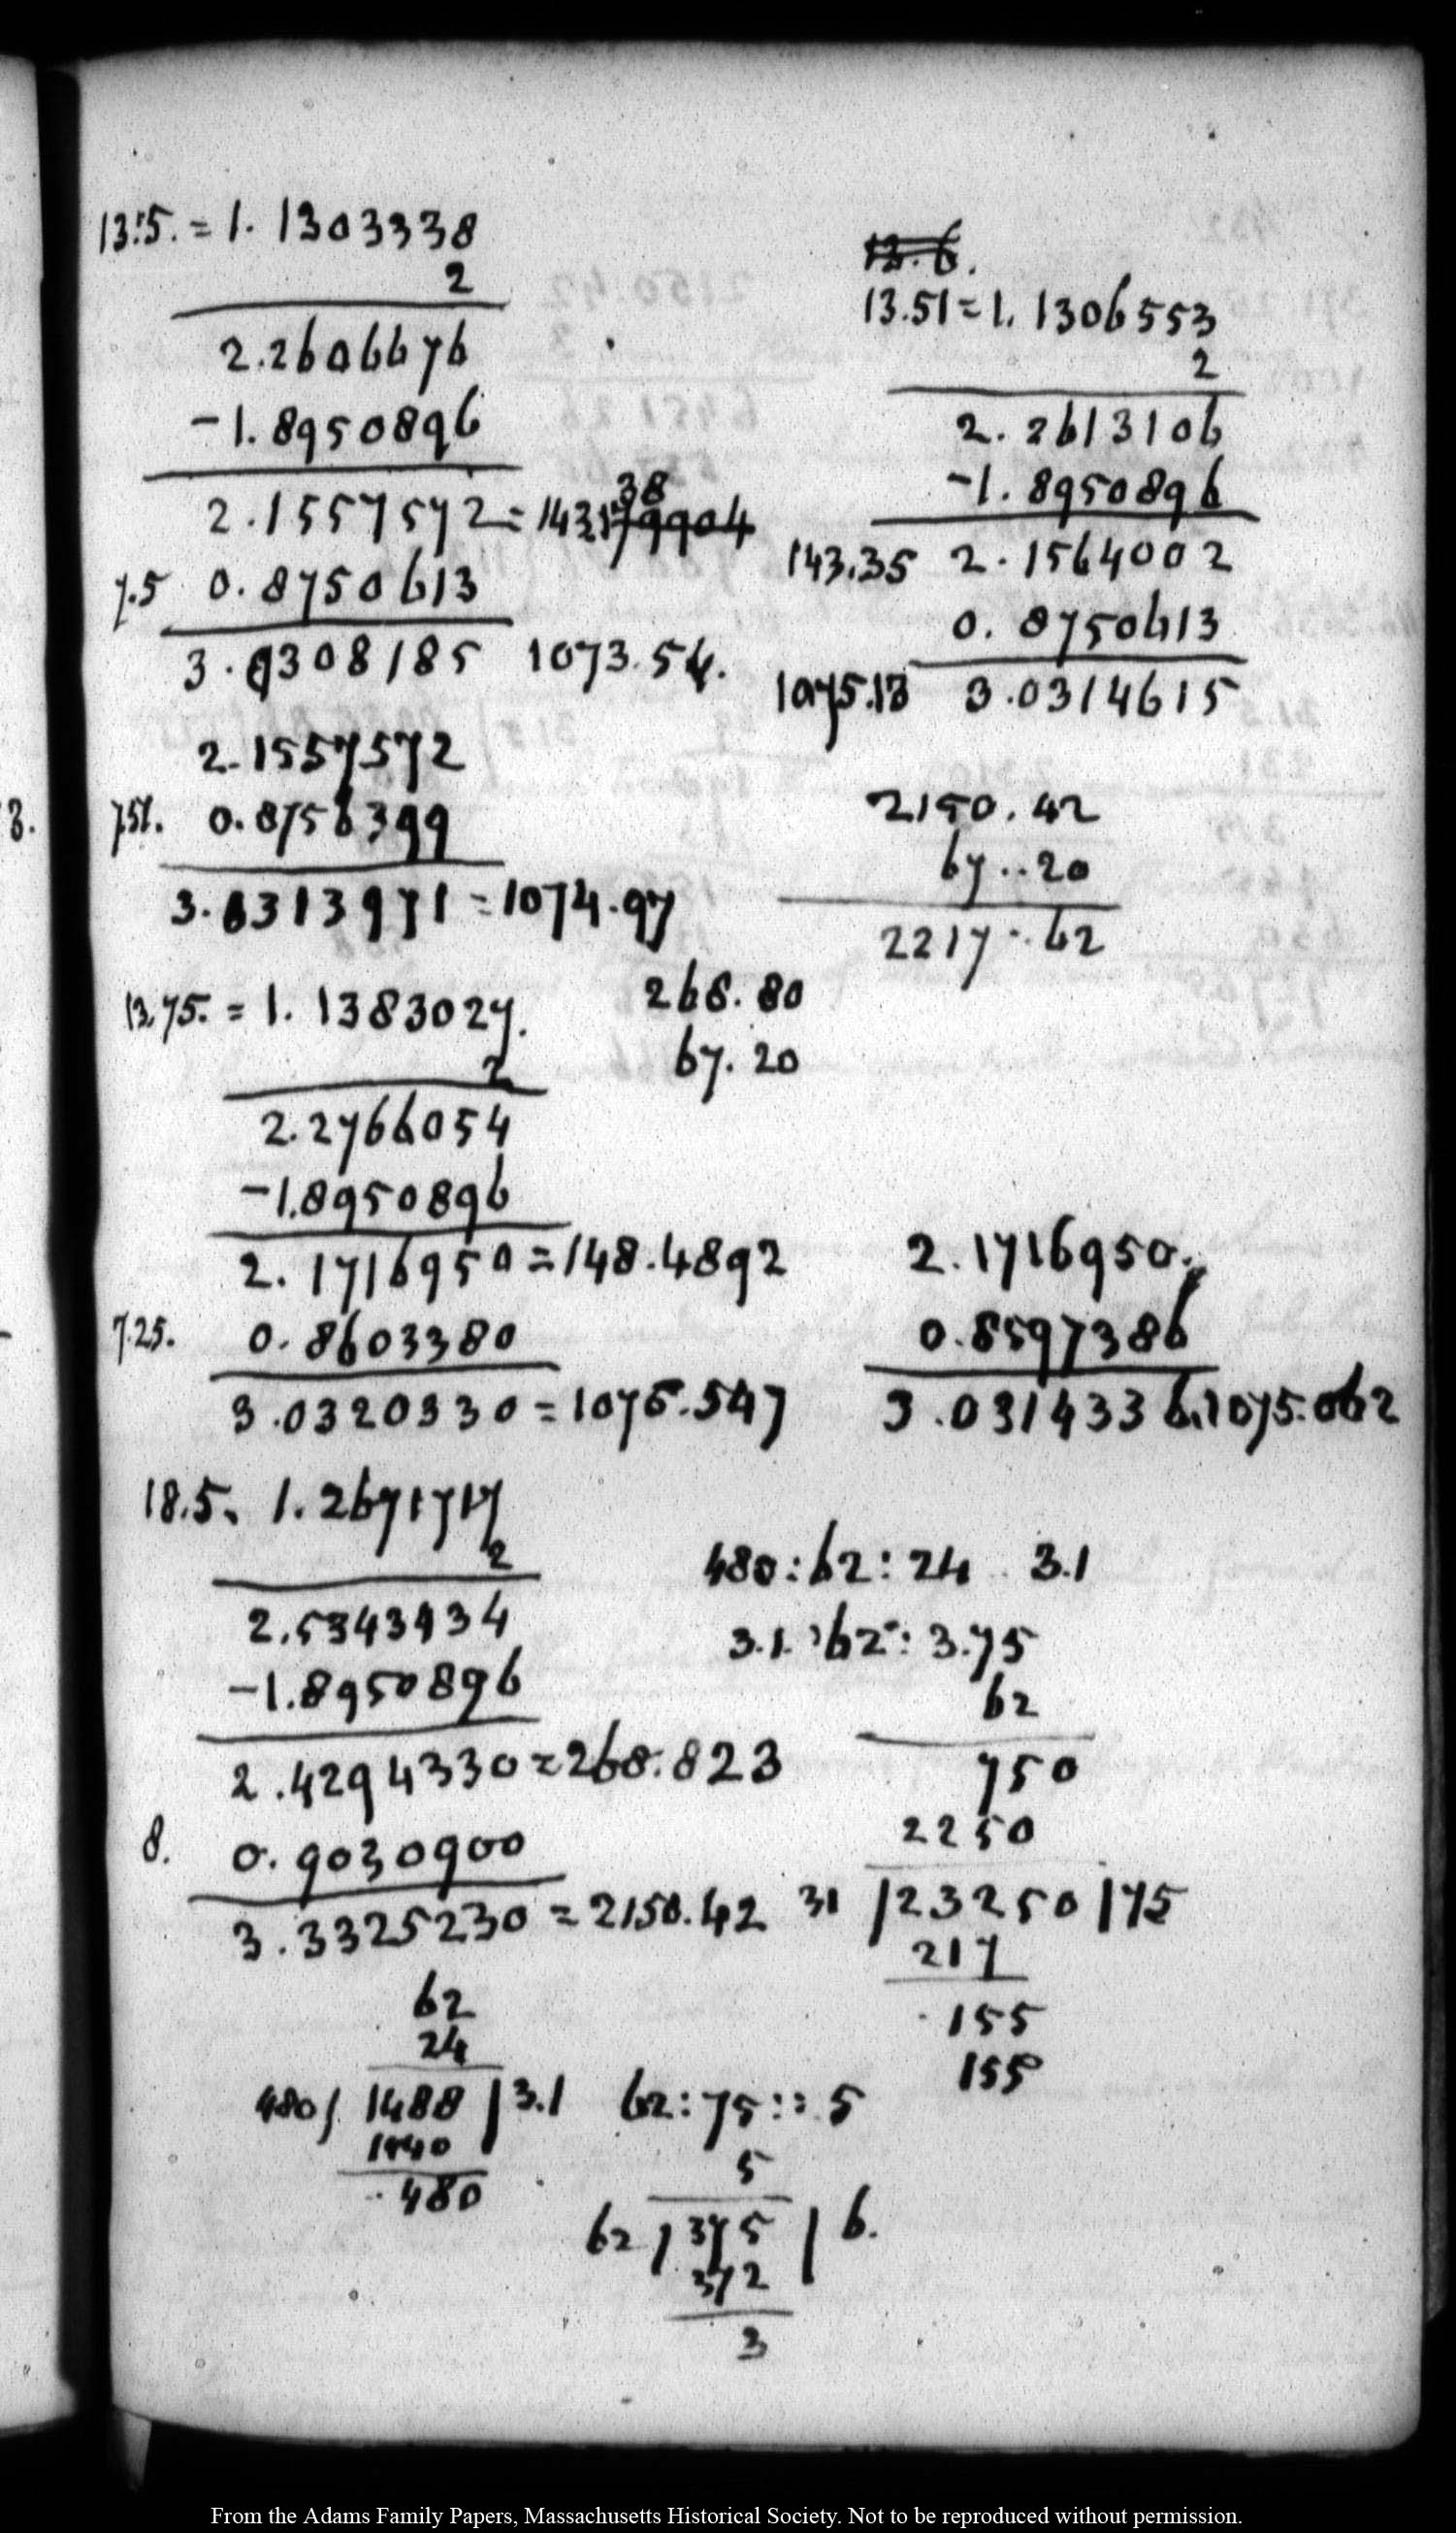 13.5. = 1. 1303338
2
2.2606676
-1.8950896
38
2.1557572 = 143.179904
7.5 0.8750613
3.0308185 1073.54.
2.1557572
7.51. 0.8756399
3.0313971 = 1074.97
13.75. = 1. 1383027.
2
2.2766054
-1.8950896
2.1716950 = 148.4892
7.25. 0.8603380
3.0320330 = 1076.547
18.5. 1.2671717
2
2.5343434
-1.8950896
2.4294330 = 268.823
8. 0.9030900
3.3325230 = 2150.42
62
24
480 / 1488 | 3.1
1440
480
13.6.
13.51 = 1. 1306553
2
2.2613106
-1.8950896
143.35 2.1564002
0.8750613
1075.13 3.0314615
2150.42
67..20
2217.62
268.80
67.20
2.1716950.
0.8597386
3.0314336.1075.062
480 : 62 : 24 .. 3.1
3.1. : 62 : 3.75
62
750
2250
31 / 23250 | 75
217
155
155
62 : 75 :: 5
5
62 / 375 | 6.
372
3
3.
From the Adams Family Papers, Massachusetts Historical Society. Not to be reproduced without permission.